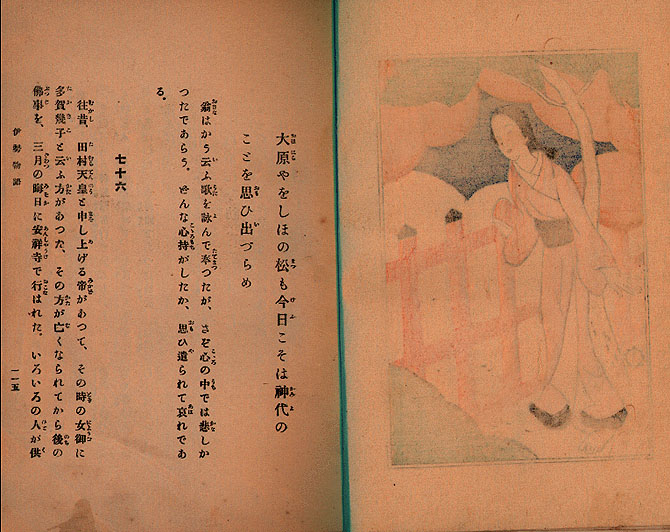 大原やをしほの松も今日こそは神代の
ことを思ひ出づらめ
翁はかう云ふ歌を詠んで奉つたが、さぞ心の中では悲しか
つたであらう。どんな心持がしたか、思ひ遣られて哀れであ
る。
七十六
往昔、田村天皇と申し上げる帝があつて、その時の女御に
多賀幾子と云ふ方があつた、その方が亡くなられてから後の
佛事を、三月の晦日に安祥寺で行はれた。いろいろの人が供
伊勢物語
一一五